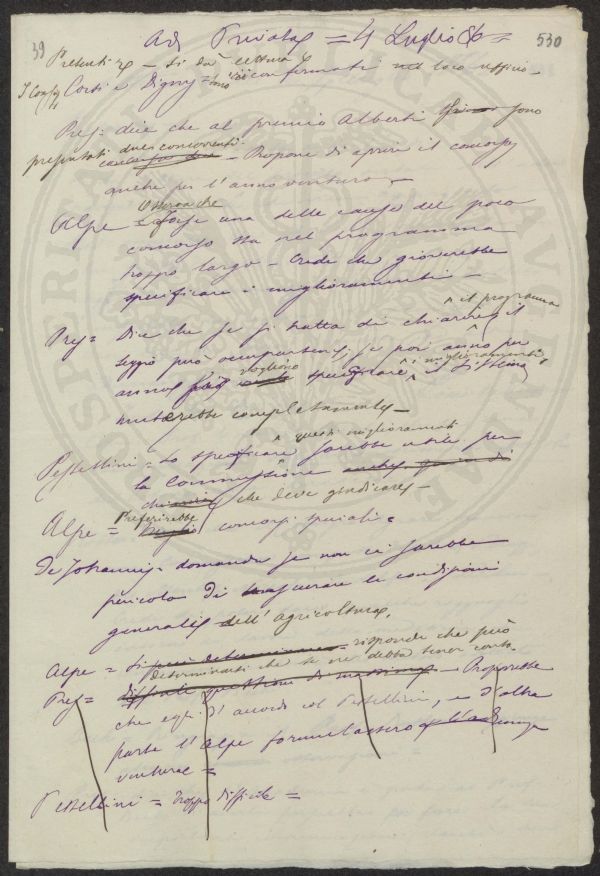 39
530
Ad. Privata = 4 Luglio 86 =
Presenti – Si dà lettura
I Consig Corsi e Digny = sono confermati nel loro uffizio –
Pres = dice che al premio Alberti sono
presentati due concorrenti – Propone di aprire il concorso
anche per l'anno venturo –
Osserva che
Alpe = Forse una delle cause del poco
concorso sta nel programma
troppo largo – Crede che gioverebbe
specificare i miglioramenti –
il programma
Pres = Dice che se si tratta di chiarire il
seggio può occuparsene, se poi anno per
vogliono i miglioramenti,
anno specificare il sistema
muterebbe completamente –
questi miglioramenti
Pestellini = Lo specificare sarebbe utile per
la Commissione anche
che deve giudicare –
Preferirebbe
Alpe = Meglio concorsi speciali =
De Johannis = domanda se non ci sarebbe
pericolo di trascurare le condizioni
generali dell'agricoltura.
Alpe = Si risponde che può
determinarsi che se ne debba tener conto.
Pres = difficile questione di massima – Proporrebbe
che egli d'accordo col Pestellini, e d'altra
parte l'Alpe formulassero
ventura =
Pestellini = troppo difficile =